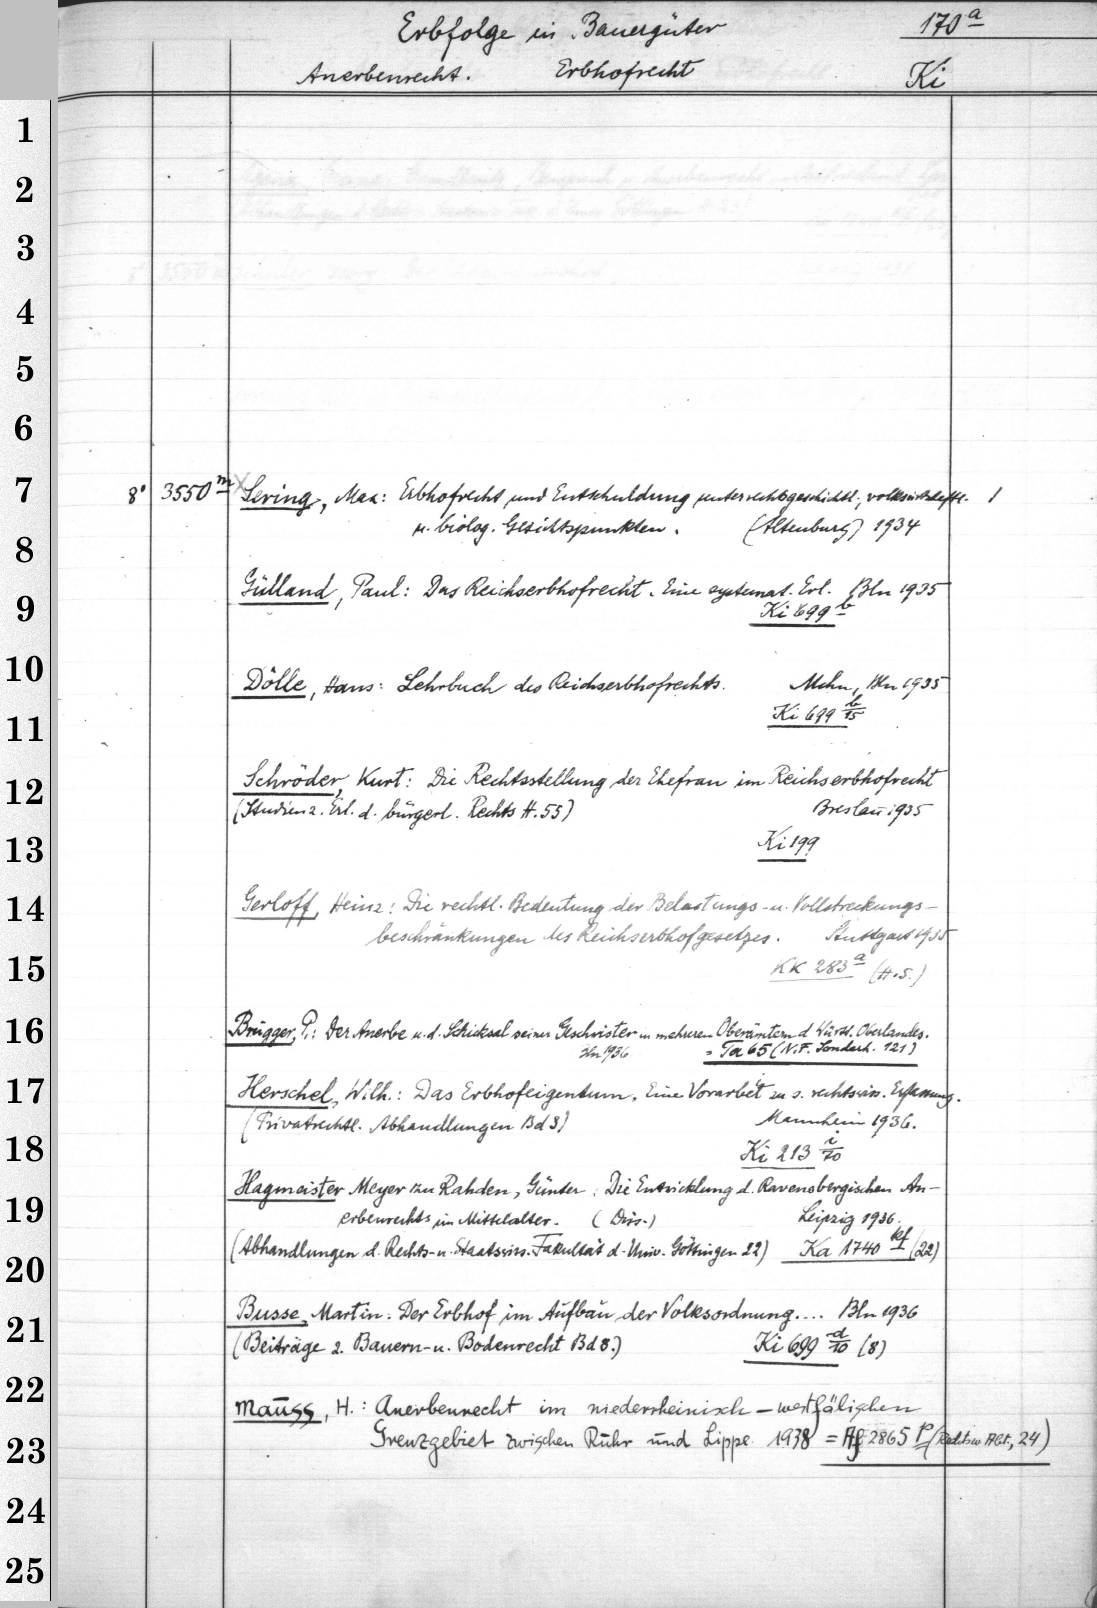 Erbfolge in Bauergüter 170 a
Anerbenrecht. Erbhofrecht Ki
1
2
3
4
5
6
7
8° 3550 m Sering, Max: Erbhofrecht und Entschuldung unter rechtsgeschichtl., volkswirtschaftl. 1
u. biolog. Gesichtspunkten. (Altenburg) 1934
8
Gülland, Paul: Das Reichserbhofrecht. Eine systemat. Erl. Bln 1935
9
Ki 699 b
10
Dölle, Hans: Lehrbuch des Reichserbhofrechts. Mchn, Bln 1935
Ki 699 b/15
11
12
Schröder, Kurt: Die Rechtsstellung der Ehefrau im Reichserbhofrecht
(Studien z. Erl. d. bürgerl. Rechts H. 55) Breslau 1935
13
Ki 199
14
Gerloff, Heinz: Die rechtl. Bedeutung der Belastungs- u. Vollstreckungs-
beschränkungen des Reichserbhofgesetzes. Stuttgart 1935
15
KK 283 a (H. 5.)
16
Brugger, P.: Der Anerbe u. d. Schicksal seiner Geschwister in mehreren Oberämtern d Württ. Oberlandes.
Bln 1936 = Ta 65 (N.F. Sonderh. 121)
17
Herschel, Wilh.: Das Erbhofeigentum. Eine Vorarbeit zu s. rechtswiss. Erfassung.
(Privatrechtl. Abhandlungen Bd 3) Mannheim 1936.
18
Ki 213 i/70
Hagmeister Meyer zu Rahden, Günter: Die Entwicklung d. Ravensbergischen An-
19
erbenrechts im Mittelalter. (Diss.) Leipzig 1936.
(Abhandlungen d. Rechts- u. Staatswiss. Fakultät d. Univ. Göttingen 22) Ka 1740 kf (22)
20
Busse, Martin: Der Erbhof im Aufbau der Volksordnung.... Bln 1936
21
(Beiträge z. Bauern- u. Bodenrecht Bd 8.) Ki 699 d/10 (8)
22
Mauss, H.: Anerbenrecht im niederrheinisch-westfälischen
23
Grenzgebiet zwischen Ruhr und Lippe. 1938 = Af 2865 p (Rechtsw Abt., 24)
24
25